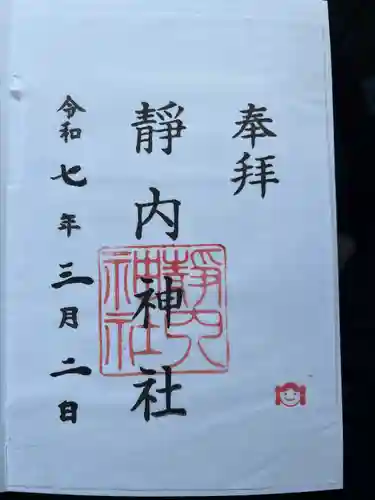 奉拝
静内神社
静内神社
令和七年三月二日